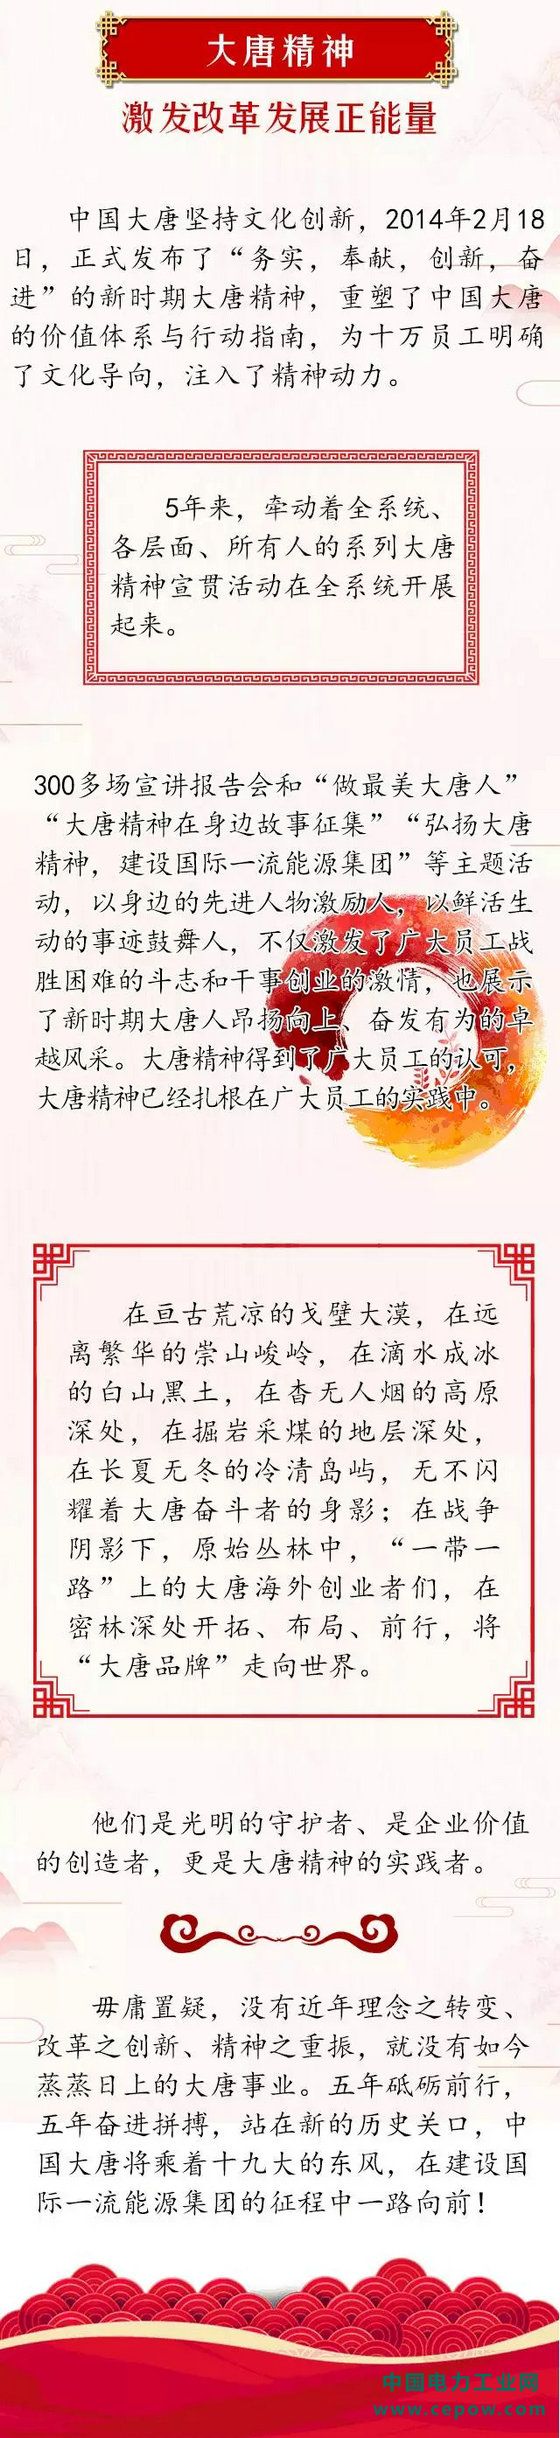 大唐精神
激发改革发展正能量
中国大唐坚持文化创新，2014年2月18
日，正式发布了“务实，奉献，创新，奋
进”的新时期大唐精神，重塑了中国大唐
的价值体系与行动指南，为十万员工明确
了文化导向，注入了精神动力。
5年来，牵动着全系统、
各层面、所有人的系列大唐
精神宣贯活动在全系统开展
起来。
300多场宣讲报告会和“做最美大唐人”
“大唐精神在身边故事征集”“弘扬大唐
精神，建设国际一流能源集团”等主题活
动，以身边的先进人物激励人，以鲜活生
动的事迹鼓舞人，不仅激发了广大员工战
胜困难的斗志和干事创业的激情，也展示
了新时期大唐人昂扬向上、奋发有为的卓
越风采。大唐精神得到了广大员工的认可，
大唐精神已经扎根在广大员工的实践中。
在亘古荒凉的戈壁大漠，在远
离繁华的崇山峻岭，在滴水成冰
的白山黑土，在杳无人烟的高原
深处，在掘岩采煤的地层深处，
在长夏无冬的冷清岛屿，无不闪
耀着大唐奋斗者的身影；在战争
阴影下，原始丛林中，“一带一
路”上的大唐海外创业者们，在
密林深处开拓、布局、前行，将
“大唐品牌”走向世界。
他们是光明的守护者、是企业价值
的创造者，更是大唐精神的实践者。
毋庸置疑，没有近年理念之转变、
改革之创新、精神之重振，就没有如今
蒸蒸日上的大唐事业。五年砥砺前行，
五年奋进拼搏，站在新的历史关口，中
国大唐将乘着十九大的东风，在建设国
际一流能源集团的征程中一路向前！
中国电力工业网
www.cepow.com